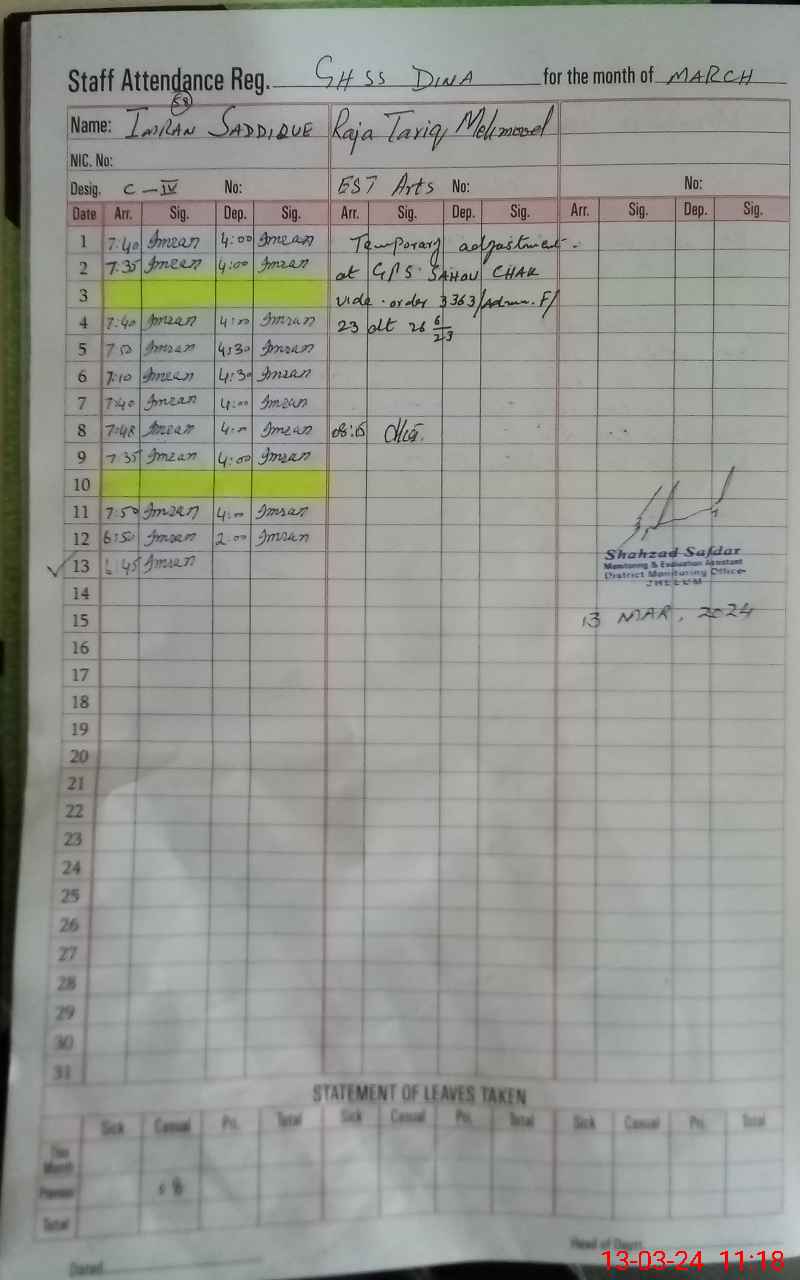 Staff Attendance Reg. GHSS DINA for the month of MARCH
58
Name: IMRAN SADDIQUE Raja Tariq Mehmood
NIC. No:
Desig. C-IV No: EST Arts No: No:
Date Arr. Sig. Dep. Sig. Arr. Sig. Dep. Sig. Arr. Sig. Dep. Sig.
1 7:40 Imran 4:00 Imran Temporary adjustment.
2 7:35 Imran 4:00 Imran at GPS SAHOU CHAK
3 vide order 3363/Admn.F/
4 7:40 Imran 4:00 Imran 23 dt 26 6/23
5 7:50 Imran 4:30 Imran
6 7:10 Imran 4:30 Imran
7 7:40 Imran 4:00 Imran
8 7:48 Imran 4:00 Imran 08:15
9 7:35 Imran 4:00 Imran
10
11 7:50 Imran 4:00 Imran
12 6:50 Imran 2:00 Imran
13 6:45 Imran
Shahzad Safdar
Monitoring & Evaluation Assistant
District Monitoring Office
JHELUM
13 MAR, 2024
14
15
16
17
18
19
20
21
22
23
24
25
26
27
28
29
30
31
STATEMENT OF LEAVES TAKEN
Sick Casual Pri. Total Sick Casual Pri. Total Sick Casual Pri. Total
This Month
Previous
Total
Dated Head of Deptt.
13-03-24 11:18